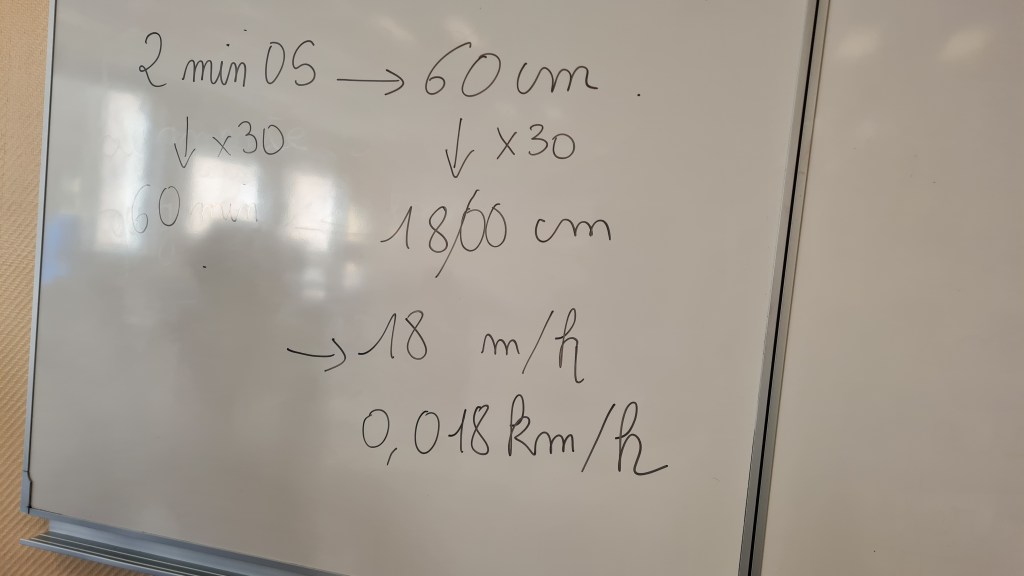 2 min 05 → 60 cm
↓ ×30 ↓ ×30
60 min 18,00 cm
→ 18 m/h
0,018 km/h